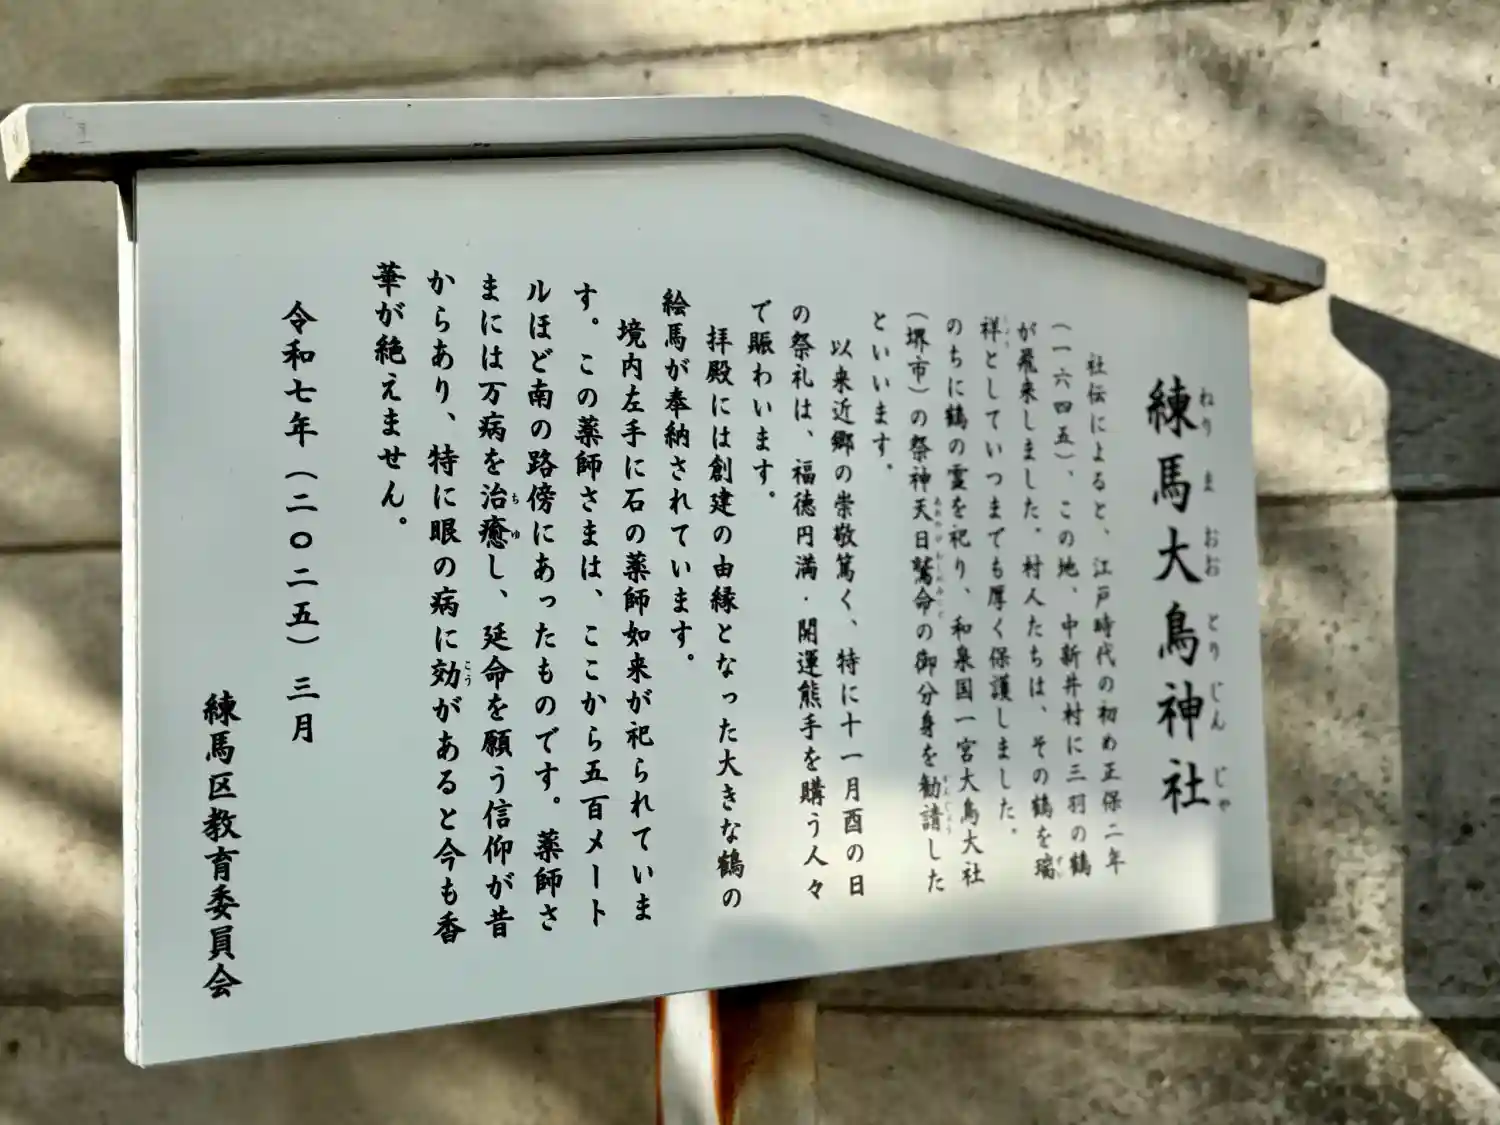 練馬大鳥神社
ねりまおおとりじんじゃ
社伝によると、江戸時代の初め正保二年
（一六四五）、この地、中新井村に三羽の鶴
が飛来しました。村人たちは、その鶴を瑞
祥としていつまでも厚く保護しました。
のちに鶴の霊を祀り、和泉国一宮大鳥大社
（堺市）の祭神天日鷲命の御分身を勧請した
といいます。
以来近郷の崇敬篤く、特に十一月酉の日
の祭礼は、福徳円満・開運熊手を購う人々
で賑わいます。
拝殿には創建の由縁となった大きな鶴の
絵馬が奉納されています。
境内左手に石の薬師如来が祀られていま
す。この薬師さまは、ここから五百メート
ルほど南の路傍にあったものです。薬師さ
まには万病を治癒し、延命を願う信仰が昔
ちゆ
からあり、特に眼の病に効があると今も香
こう
華が絶えません。
令和七年（二〇二五）三月
練馬区教育委員会